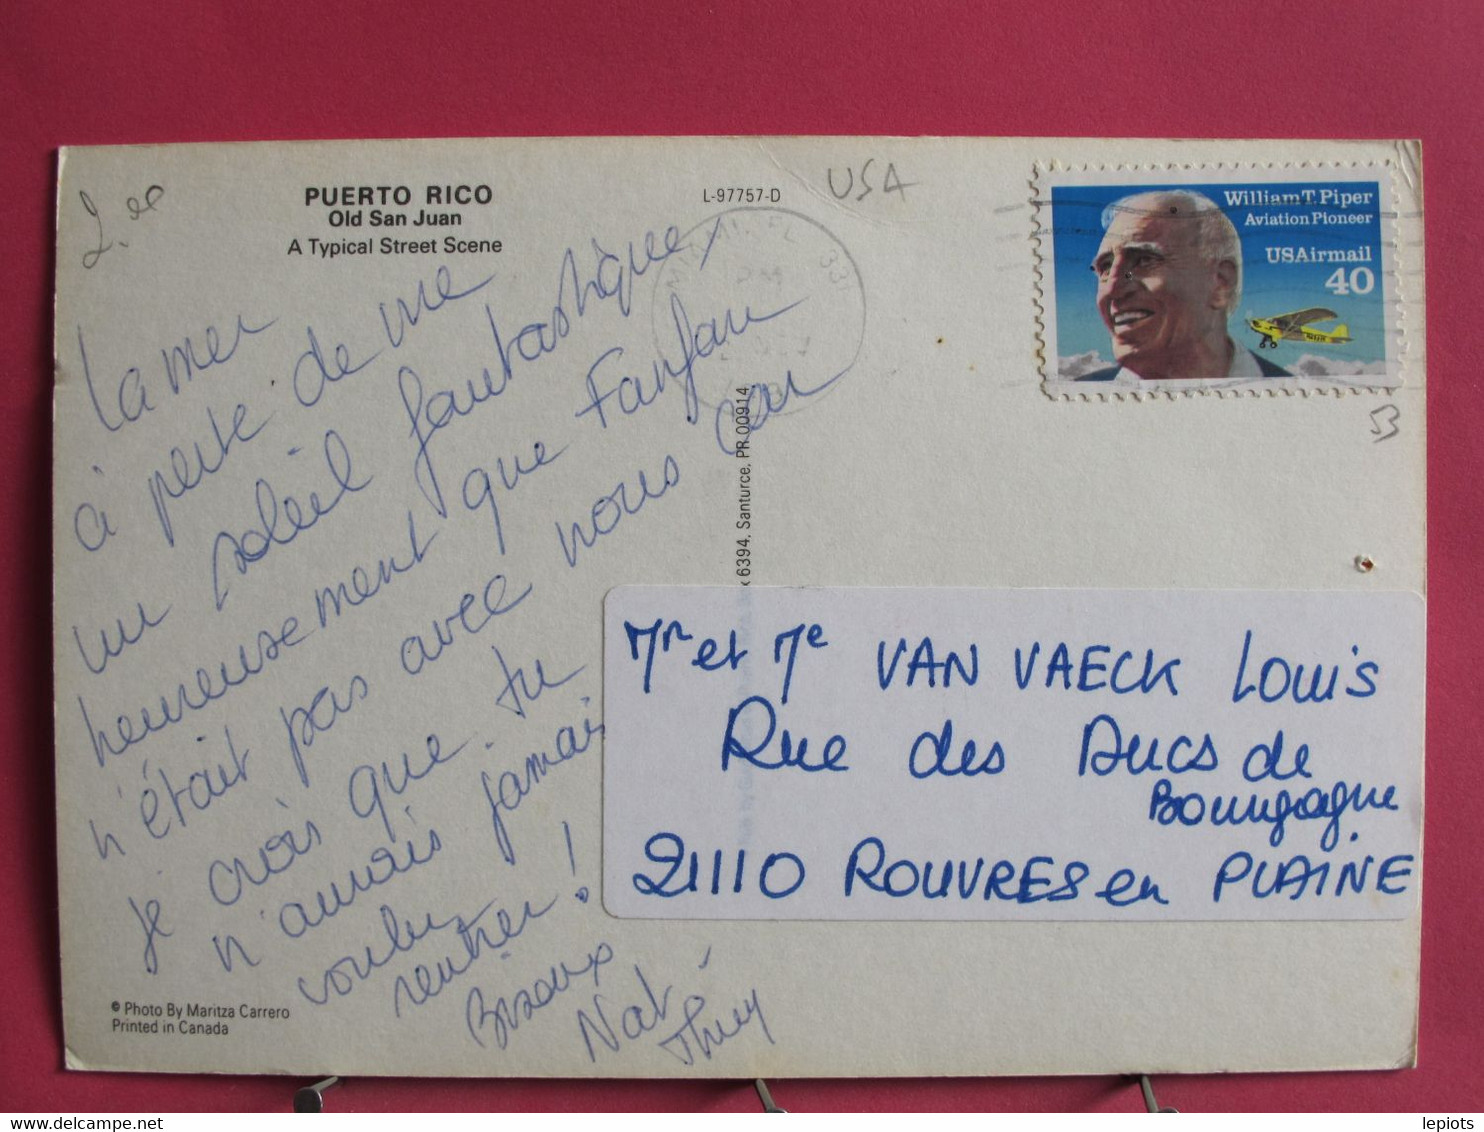 2.00
PUERTO RICO
Old San Juan
A Typical Street Scene
L-97757-D
USA
William T. Piper
Aviation Pioneer
USAirmail
40
MIAMI, FL 331
PM
53
La mer
à perte de vue
un soleil fantastique,
heureusement que Fanfan
n'était pas avec nous car
je crois que tu
n'aurais jamais
voulu
rentrer !
Bisoux
Nat
Thierry
x 6394, Santurce, PR 00914
Mr et Me VAN VAECK Louis
Rue des Ducs de
Bourgogne
21110 ROUVRES en PLAINE
© Photo By Maritza Carrero
Printed in Canada
lepiots